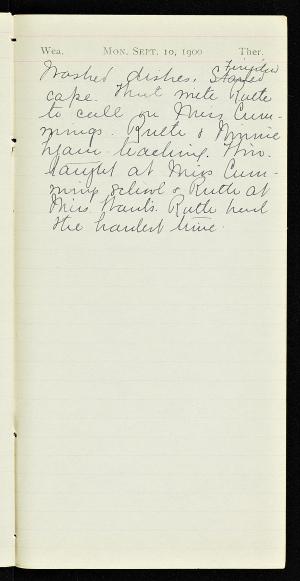 Wea. Mon. Sept. 10, 1900 Ther.
Finished
Washed dishes. Started
cape. Went with Ruth
to call on Miss Cum-
mings. Ruth & Minnie
began teaching. Min.
taught at Miss Cum-
mings school & Ruth at
Miss Ruth had
the hardest time.